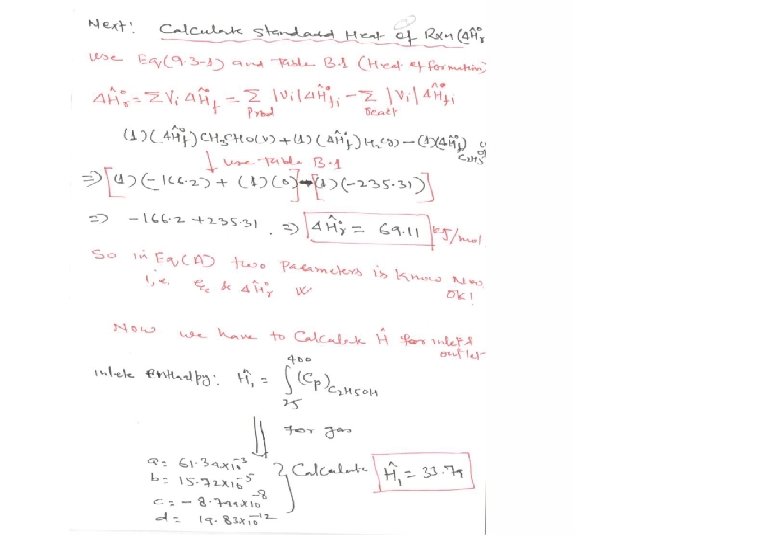 Next: Calculate Standard Heat of Rxn (ΔĤ°r
use Eq(9.3-1) and Table B.1 (Heat of formation)
ΔĤ°r = ΣVi ΔĤ°f = Σ |Vi| ΔĤ°fi - Σ |Vi| ΔĤ°fi
Prod React
(1)(ΔĤ°f) CH3CHO(v) + (1)(ΔĤ°f) H2(g) - (1)(ΔĤ°f)
↓ use Table B.1
⇒ [(1)(-166.2) + (1)(0)] - [(1)(-235.31)]
⇒ -166.2 + 235.31 . ⇒ ΔĤ°r = 69.11 kJ/mol
So in Eq(A) two parameters is know Now
i.e. ξ & ΔĤ°r OK!
Now we have to Calculate Ĥ for inlet &
outlet
inlete Enthalpy: Ĥ1 = ∫ (Cp) C2H5OH
400
25
⇓ for gas
a = 61.34x10^-3
b = 15.72x10^-5
c = -8.749x10^-8
d = 19.83x10^-12
} Calculate Ĥ1 = 33.79